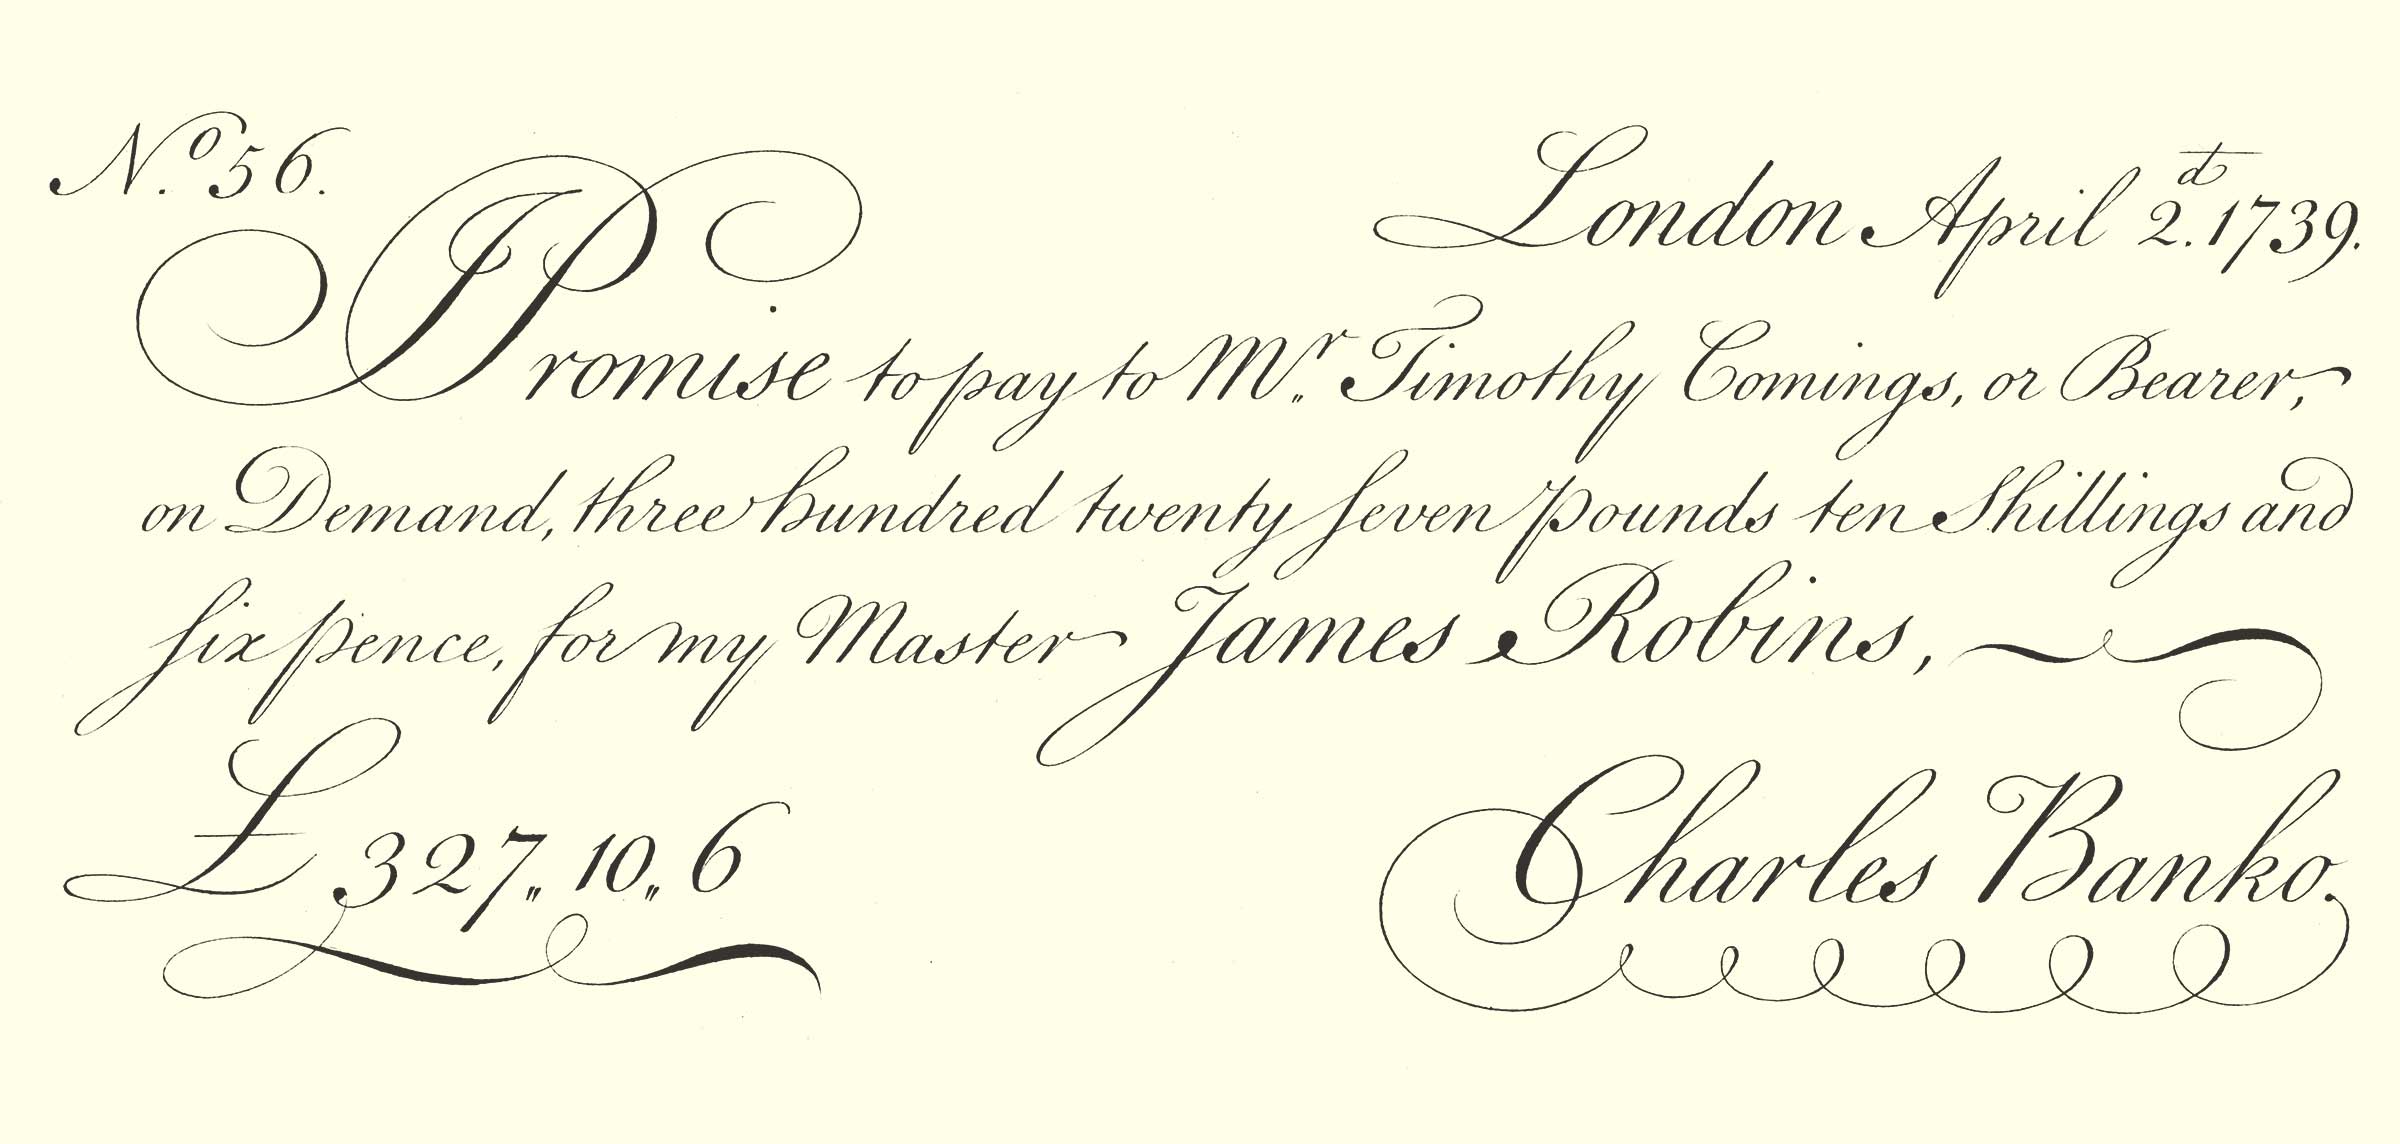 Nº. 56.
London April 2.d 1739.
I Promise to pay to Mr. Timothy Comings, or Bearer,
on Demand, three hundred twenty seven pounds ten Shillings and
six pence, for my Master James Robins,
£ 327,, 10,, 6
Charles Banko.